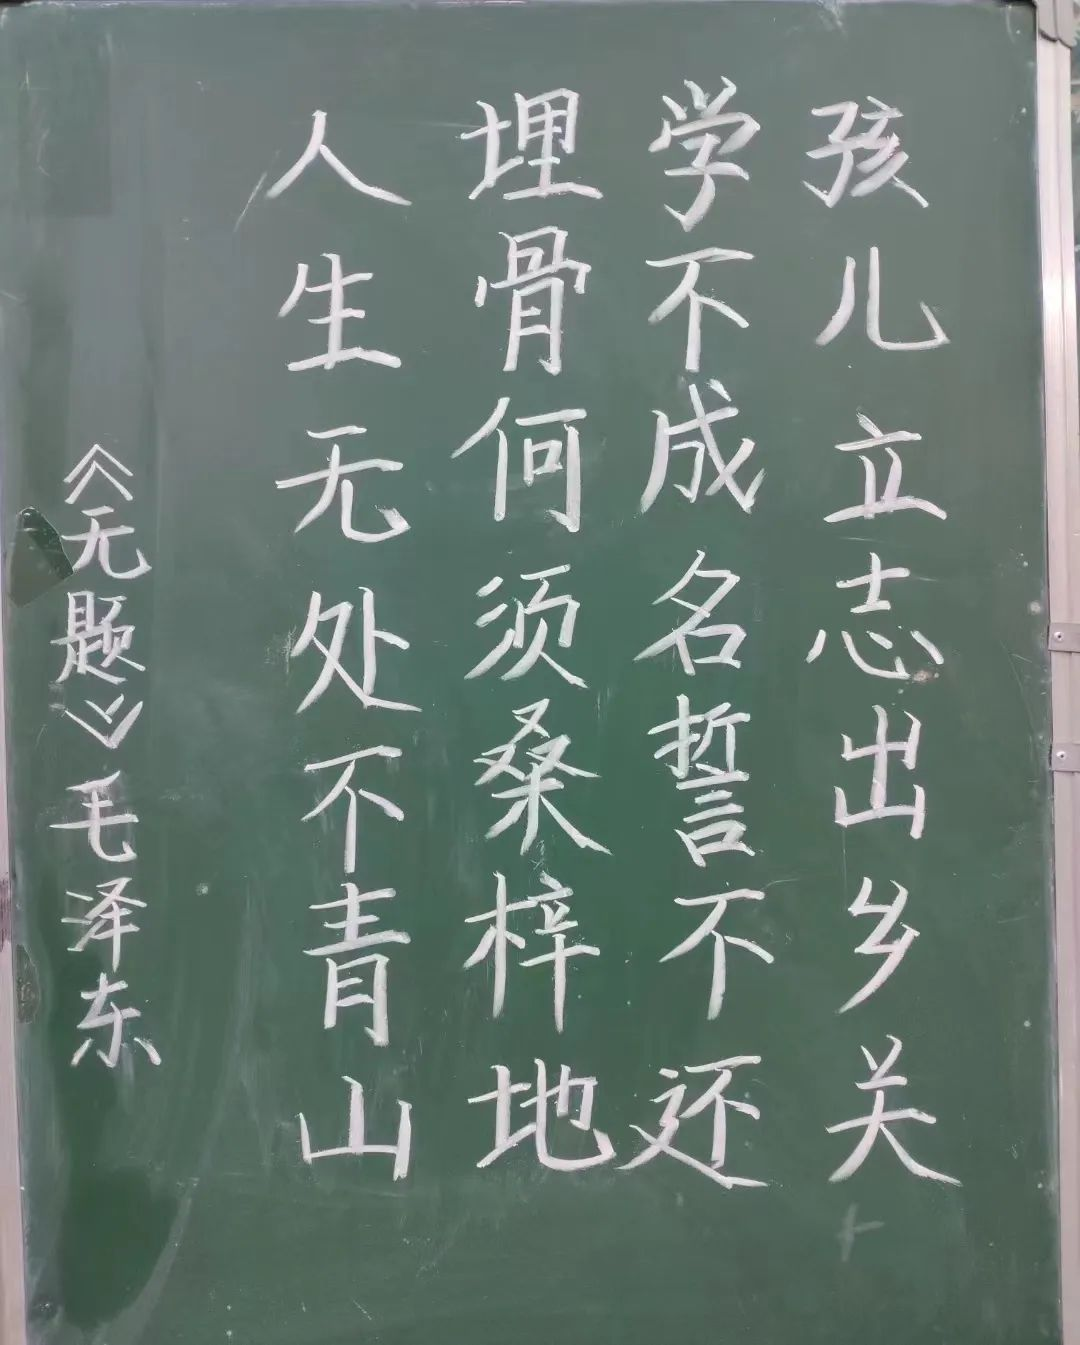 孩儿立志出乡关
学不成名誓不还
埋骨何须桑梓地
人生无处不青山
《无题》毛泽东